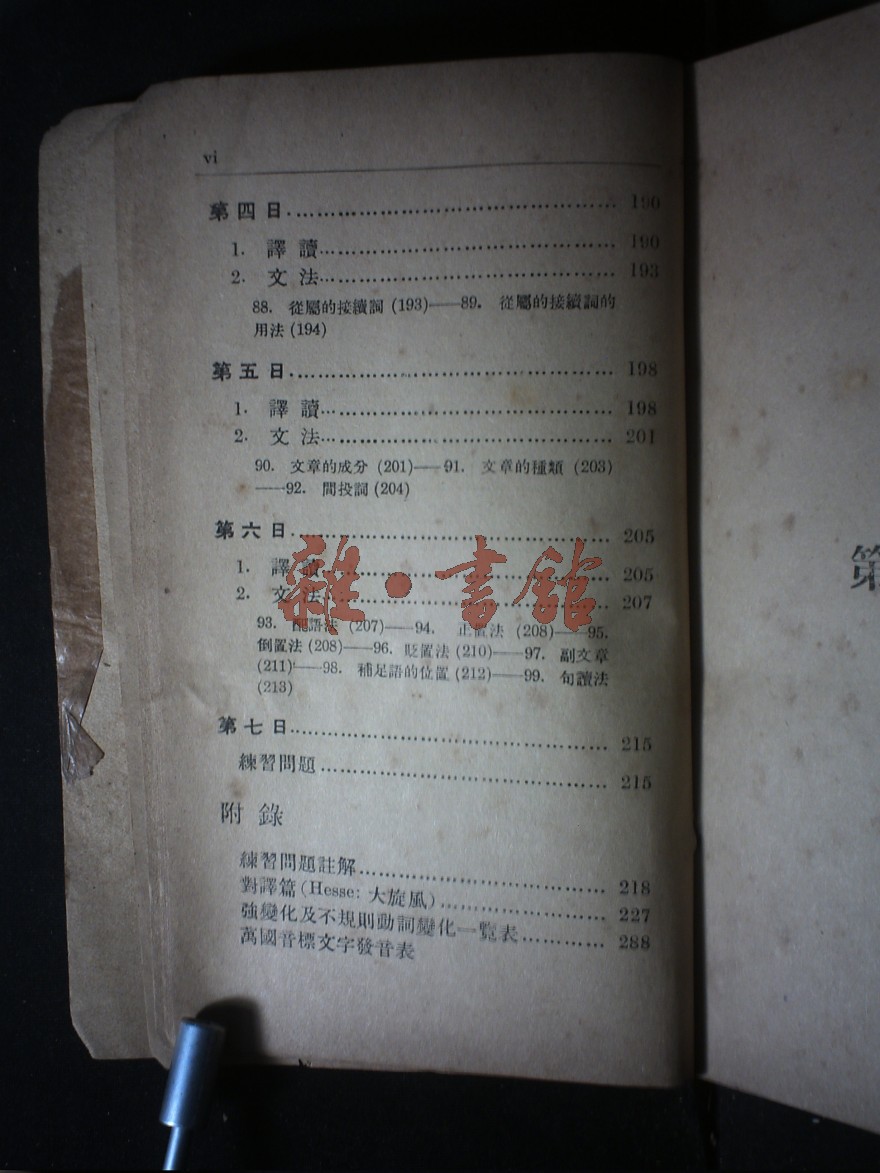 vi
第四日 190
1. 譯讀 190
2. 文法 193
88. 從屬的接續詞 (193)——89. 從屬的接續詞的
用法 (194)
第五日 198
1. 譯讀 198
2. 文法 201
90. 文章的成分 (201)——91. 文章的種類 (203)
——92. 間投詞 (204)
第六日 205
1. 譯讀 205
2. 文法 207
雜·書館
93. 配語法 (207)——94. 正置法 (208)——95.
倒置法 (208)——96. 貶置法 (210)——97. 副文章
(211)——98. 補足語的位置 (212)——99. 句讀法
(213)
第七日 215
練習問題 215
附錄
練習問題註解 218
對譯篇 (Hesse: 大旋風) 227
強變化及不規則動詞變化一覽表 288
萬國音標文字發音表
第